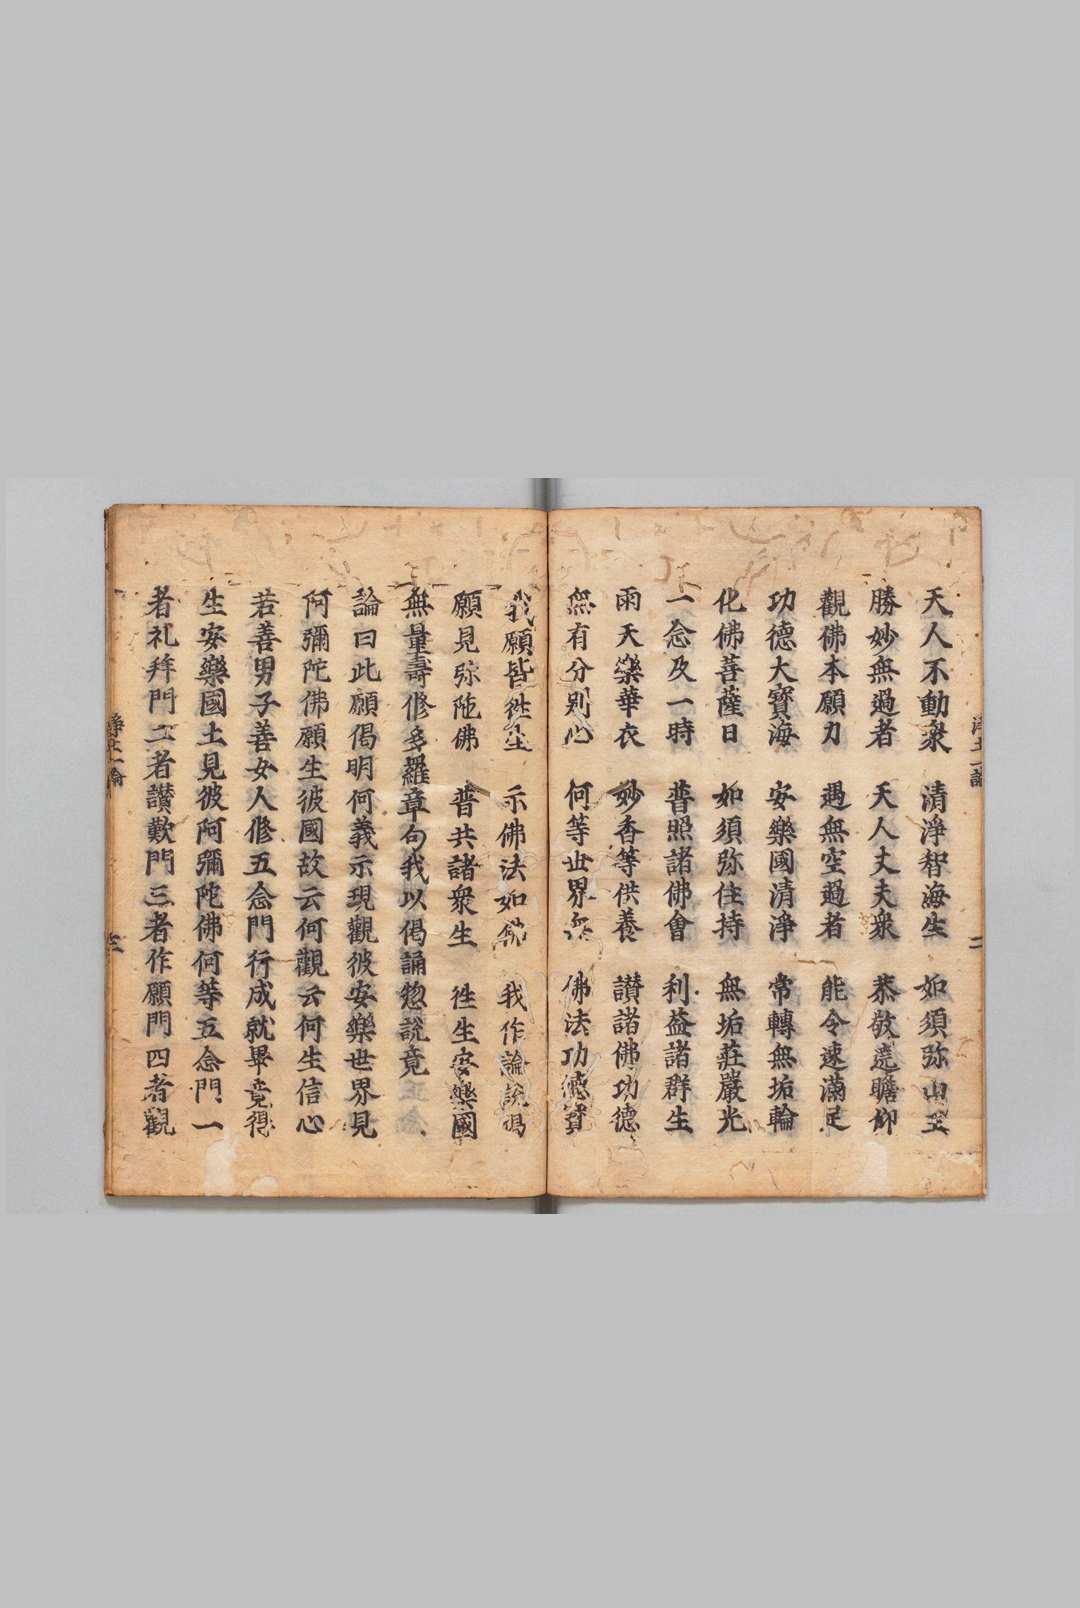 天人不動衆　清淨智海生　如須弥山王
勝妙無過者　天人丈夫衆　恭敬遶瞻仰
觀佛本願力　遇無空過者　能令速滿足
功德大寶海　安樂國清淨　常轉無垢輪
化佛菩薩日　如須弥住持　無垢莊嚴光
一念及一時　普照諸佛會　利益諸群生
雨天樂華衣　妙香等供養　讃諸佛功德
無有分別心　何等世界無　佛法功德寶
我願皆徃生　示佛法如佛　我作論說偈
願見弥陁佛　普共諸衆生　徃生安樂國
無量壽修多羅章句我以偈誦惣說竟
論曰此願偈明何義示現觀彼安樂世界見
阿彌陀佛願生彼國故云何觀云何生信心
若善男子善女人修五念門行成就畢竟得
生安樂國土見彼阿彌陀佛何等五念門一
者礼拜門二者讃歎門三者作願門四者觀
淨土論
二